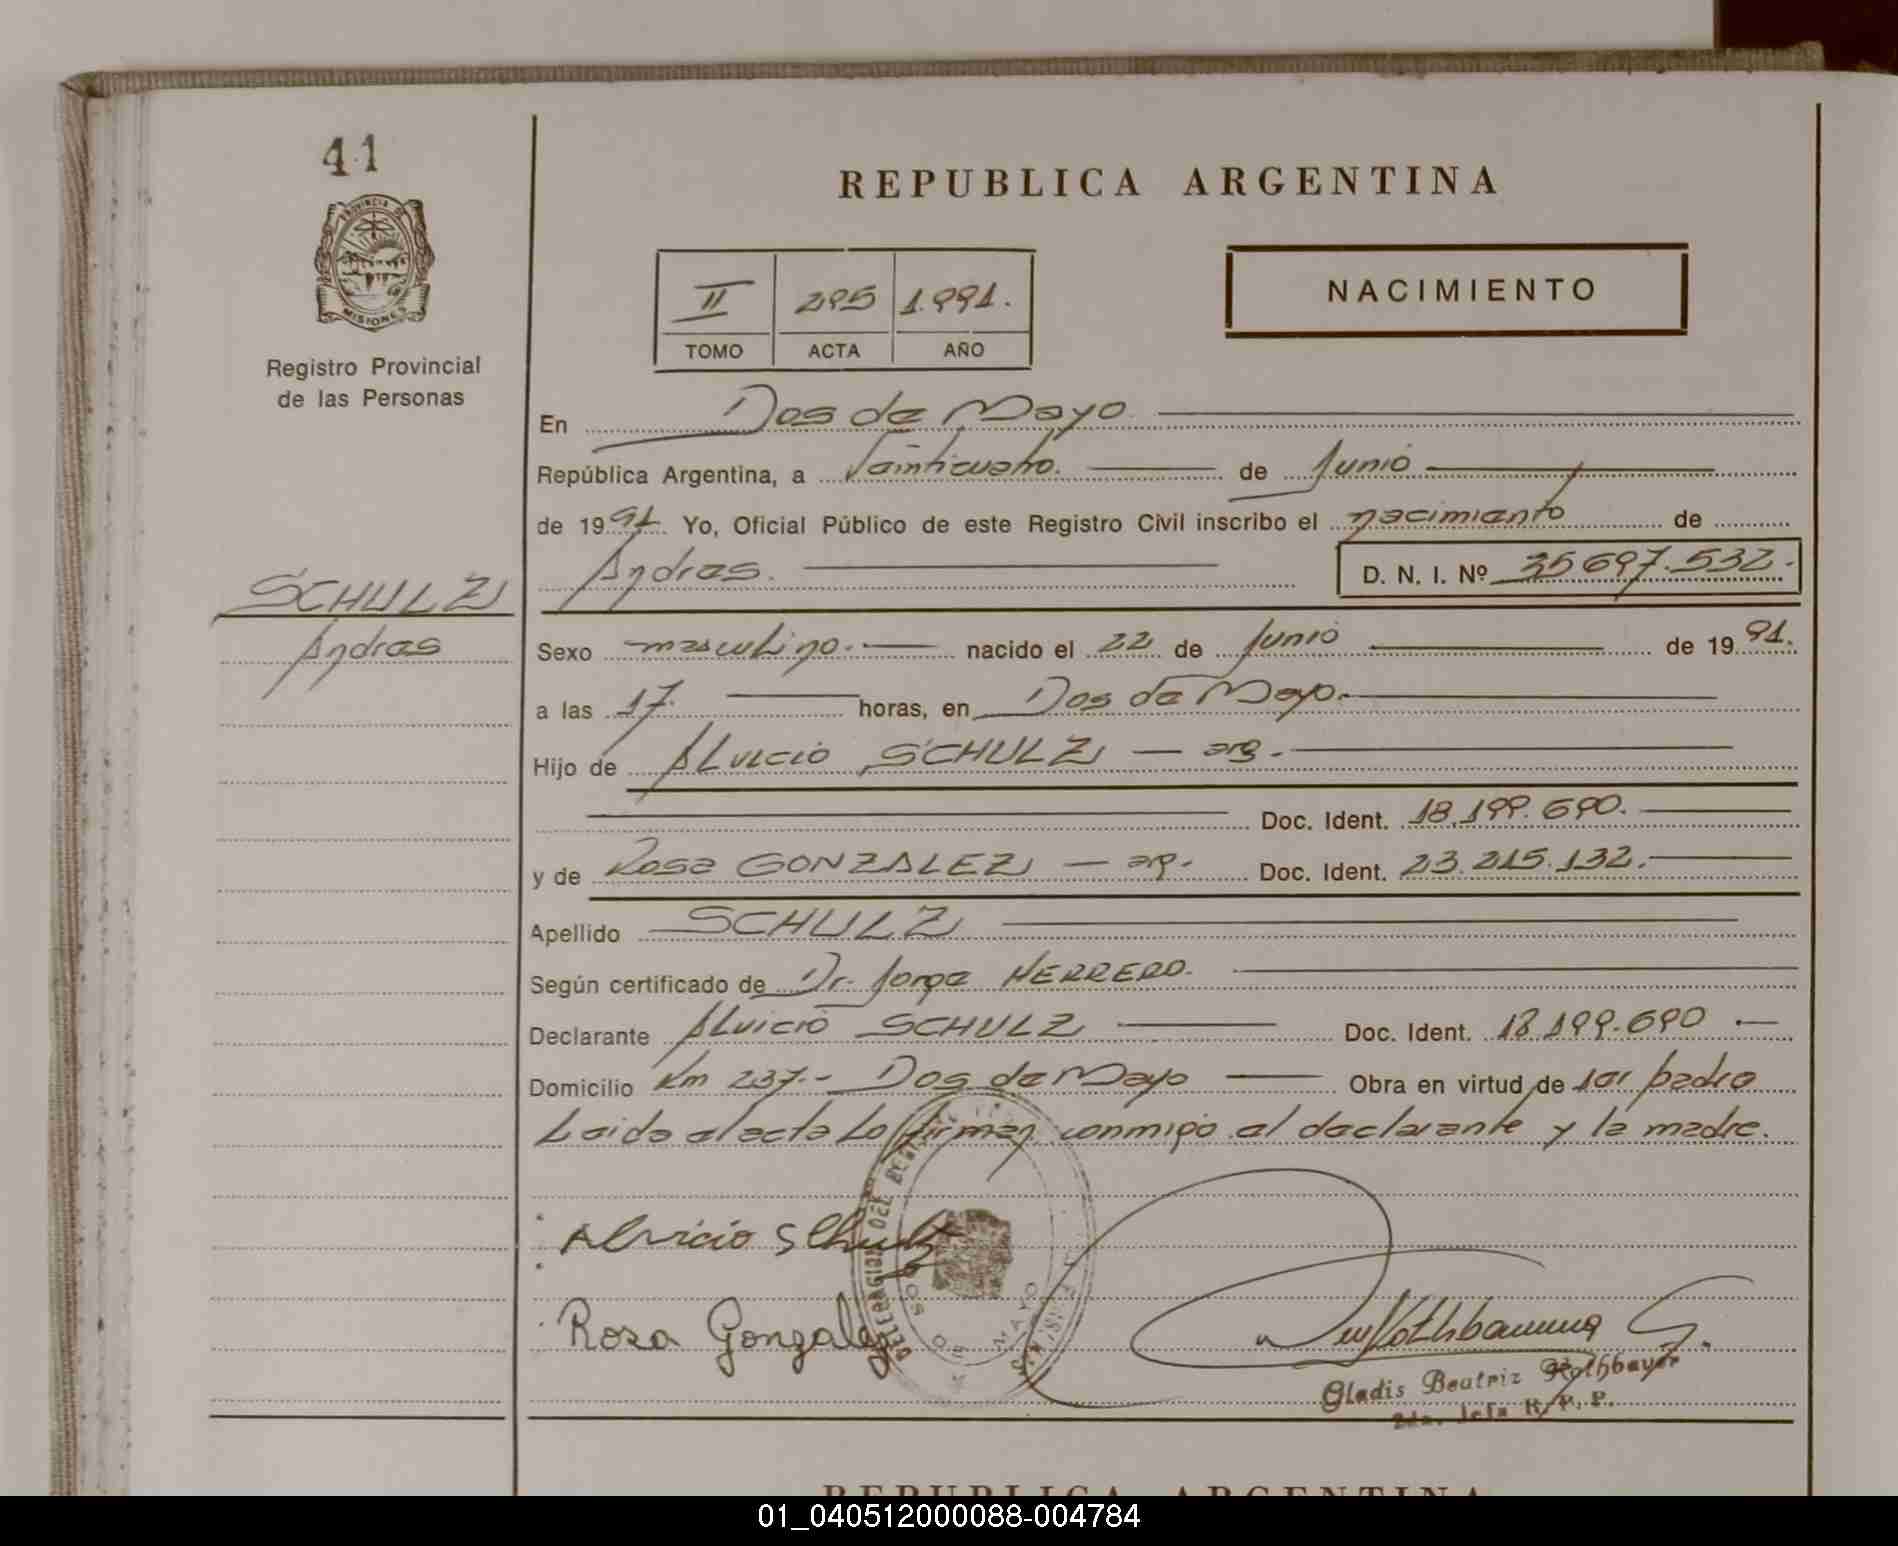 41
PROVINCIA DE
MISIONES
Registro Provincial
de las Personas
REPUBLICA ARGENTINA
II 295 1.991.
TOMO ACTA AÑO
NACIMIENTO
En Dos de Mayo
República Argentina, a Veinticuatro. de Junio
de 1991. Yo, Oficial Público de este Registro Civil inscribo el nacimiento de
Andres. D. N. I. Nº 35697.532.-
SCHULZ
Andres
Sexo masculino. nacido el 22 de Junio de 1991.
a las 17. horas, en Dos de Mayo.
Hijo de ALVICIO SCHULZ — arg.
Doc. Ident. 18.199.690.
y de Rosa GONZALEZ — arg. Doc. Ident. 23.215.132.
Apellido SCHULZ
Según certificado de Dr. Jorge HERRERO.
Declarante Alvicio SCHULZ Doc. Ident. 18.199.690
Domicilio Km 237.- Dos de Mayo Obra en virtud de ser padre
Leida el acta la firman conmigo el declarante y la madre.
Alvicio Schulz
DELEGACION DEL
DOS DE MAYO
Rosa Gonzalez
Gladis Beatriz Rothbauer
2da. Jefa R. P. P.
REPUBLICA ARGENTINA
01_040512000088-004784